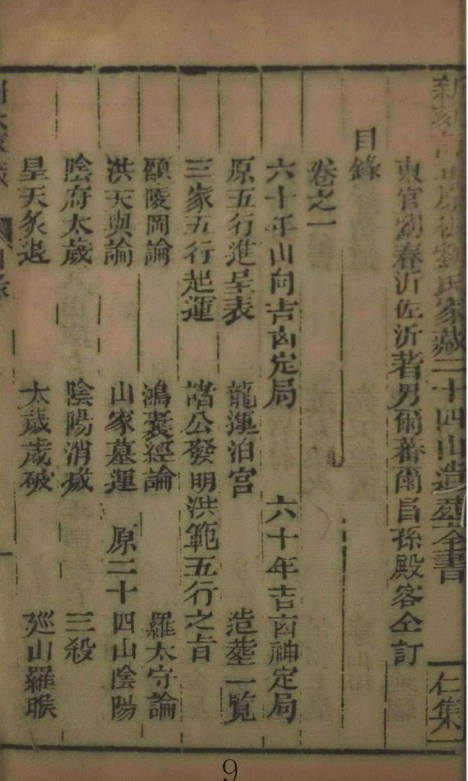 家藏二十四山造葬全書 仁集
東官劉春沂佐沂著男爾蕃爾昌孫殿客仝訂
目錄
卷之一
六十年山向吉凶定局 六十年吉凶神定局
原五行進呈表 龍運泊宮 造塟一覧
三家五行起運 諸公發明洪範五行之旨
頥陵岡論 鴻嚢經論 羅太守論
洪天與論 山家墓運 原二十四山陰陽
陰府太歲 陰陽消滅 三殺
皇天炙退 太歲歲破 廵山羅睺
9